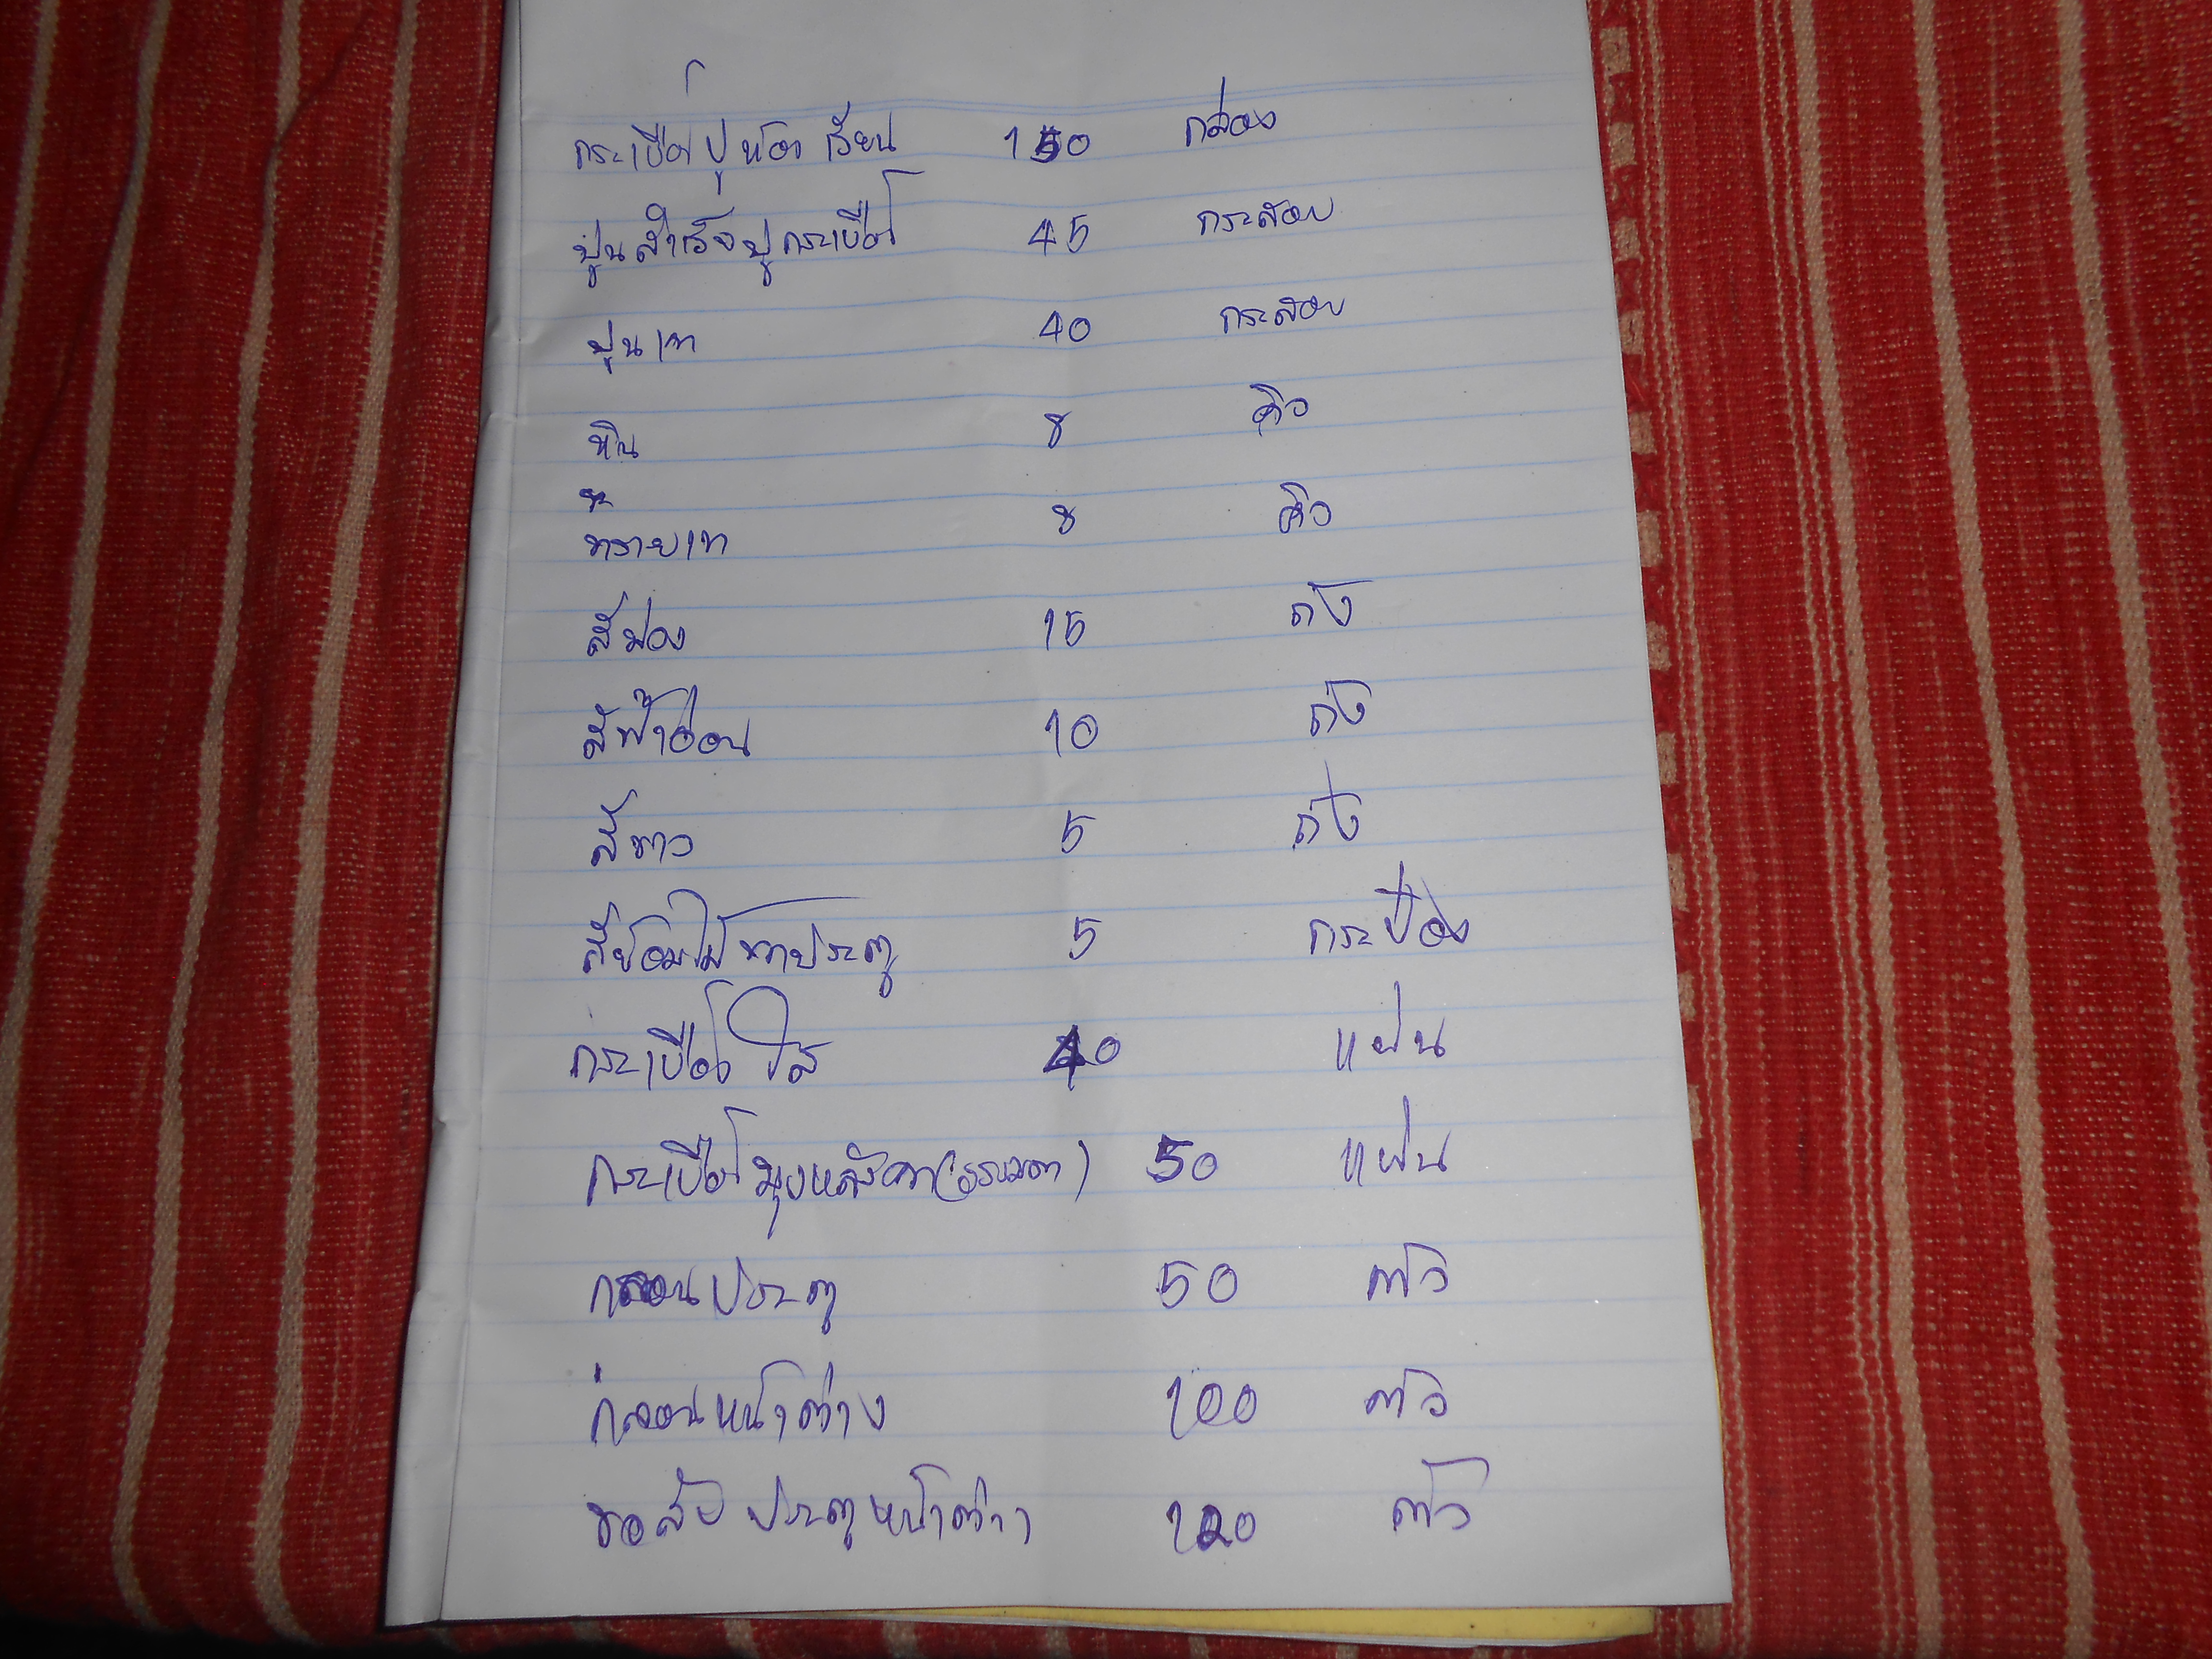 กระเบื้องปูห้องเรียน 150 กล่อง
ปูนสำเร็จปูกระเบื้อง 45 กระสอบ
ปูนเท 40 กระสอบ
หิน 8 คิว
ทรายเท 8 คิว
สีม่วง 15 ถัง
สีฟ้าอ่อน 10 ถัง
สีขาว 5 ถัง
สีย้อมไม้ทาประตู 5 กระป๋อง
กระเบื้องใส 40 แผ่น
กระเบื้องมุงหลังคา(ธรรมดา) 50 แผ่น
กลอนประตู 50 ตัว
กลอนหน้าต่าง 100 ตัว
ขอสับประตูหน้าต่าง 120 ตัว